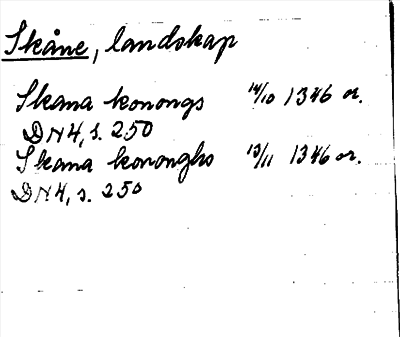 Skåne, landskap
Skana konongs 14/10 1346 or.
DN4, s. 250
Skana konongho 13/11 1346 or.
DN4, s. 250